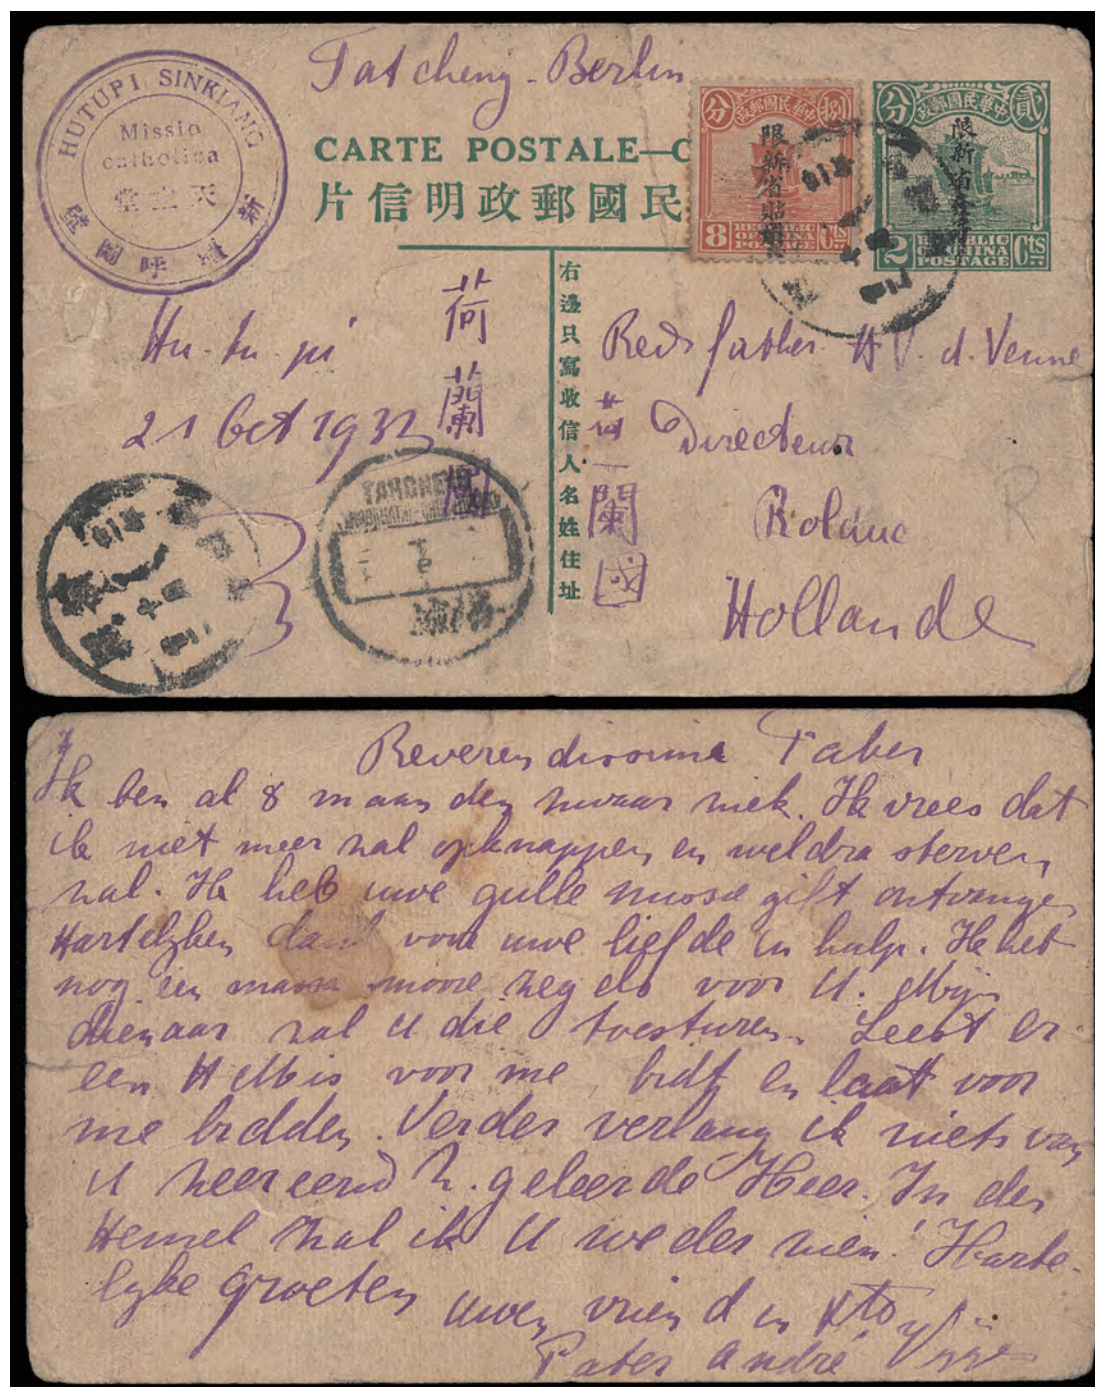 Tatcheng - Berlin
HUTUPI, SINKIANG
Missio
catholica
天主堂
新疆呼圖壁
CARTE POSTALE—C
片信明政郵國民
分 政郵國民華中 捌
限新省貼用
8 REPUBLIC OF CHINA POSTAGE Cts
分 政郵國民華中 貳
限新省
2 REPUBLIC OF CHINA POSTAGE Cts
Hu-tu-pi
21 Oct 1932
荷蘭國
右邊只寫收信人名姓住址
Revd father H V. d. Venne
Directeur
Rolduc
Hollande
荷蘭國
R
Reverendissime Pater
Ik ben al 8 maanden zwaar ziek. Ik vrees dat
ik niet meer zal opknappen en weldra sterven
zal. Ik heb uwe gulle misse gift ontvangen
Hartelyken dank voor uwe liefde en hulp. Ik heb
nog een massa mooie zegels voor U. Mijn
dienaar zal U die toesturen. Leest er
een H Mis voor me, bidt en laat voor
me bidden. Verder verlang ik niets van
U zeereerw h. geleerde Heer. In den
Hemel zal ik U weder zien! Harte-
lyke groeten uwen vriend in Xto
Pater André